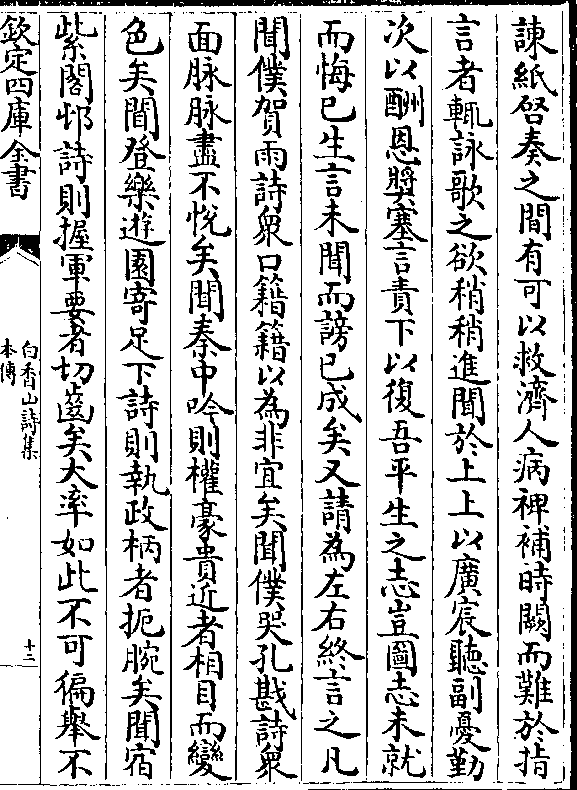 諫紙啓奏之間有可以救濟人病裨補時闕而難於指
言者輒詠歌之欲稍稍進聞於上上以廣宸聽副憂勤
次以酬恩奬塞言責下以復吾平生之志豈圖志未就
而悔已生言未聞而謗已成矣又請為左右終言之凡
聞僕賀雨詩衆口籍籍以為非宜矣聞僕哭孔戡詩衆
面脉脉盡不悅矣聞秦中吟則權豪貴近者相目而變
色矣聞登樂遊園寄足下詩則執政柄者扼腕矣聞宿
紫閣邨詩則握軍要者切齒矣大率如此不可徧舉不
欽定四庫全書
白香山詩集
本傳
十三